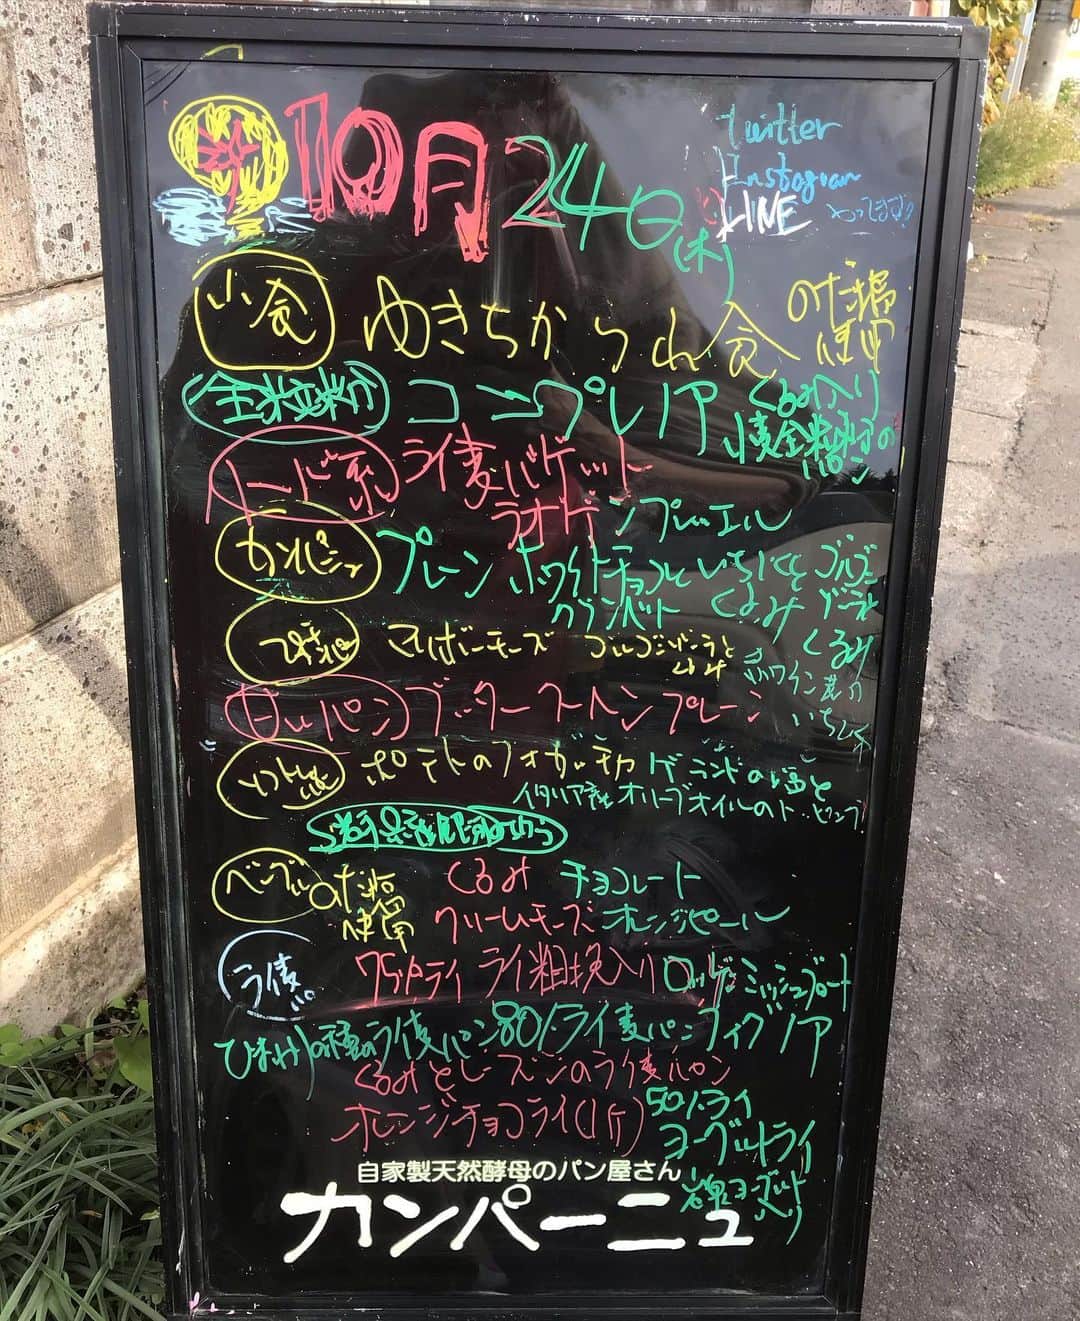 10月24日(木)
twitter
Instagram
LINE やってます
小食 ゆきちから 食 のだ塩使用
全粒粉 コンプレノア くるみ入り
小麦全粒粉のパン
ハード系 ライ麦バゲット
ラオゲンプレッエル
カンパーニュ プレーン ホワイトチョコと いちじくと ゴルゴンゾーラ
クランベリー くるみ くるみ
プチパン チーズ ゴルゴンゾーラと 赤ワイン煮の
いちじく
甘いパン ブッタークーヘン プレーン
ポテトのフォカッチャ ゲランドの塩と
イタリア産オリーブオイルのトッピング!
ベーグル のだ塩 くるみ チョコレート
使用 クリームチーズ オレンジピール
ライ麦パン 75%ライ ライ粗挽入り ロッゲンミッシュブロート
ひまわりの種のライ麦パン 80%ライ麦パン フィグノア
くるみとレーズンのライ麦パン
オレンジチョコライ(1ケ) 50%ライ
ヨーグルトライ
岩泉ヨーグルト入り
自家製天然酵母のパン屋さん
カンパーニュ